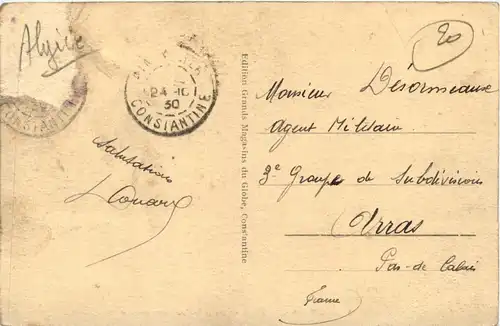 Algérie
20
CONSTANTINE
30
Salutations
Edition Grands Magasins du Globe, Constantine
Monsieur Désormeaux
Agent Militaire
3e Groupe de Subdivisions
Arras
Pas-de Calais
France